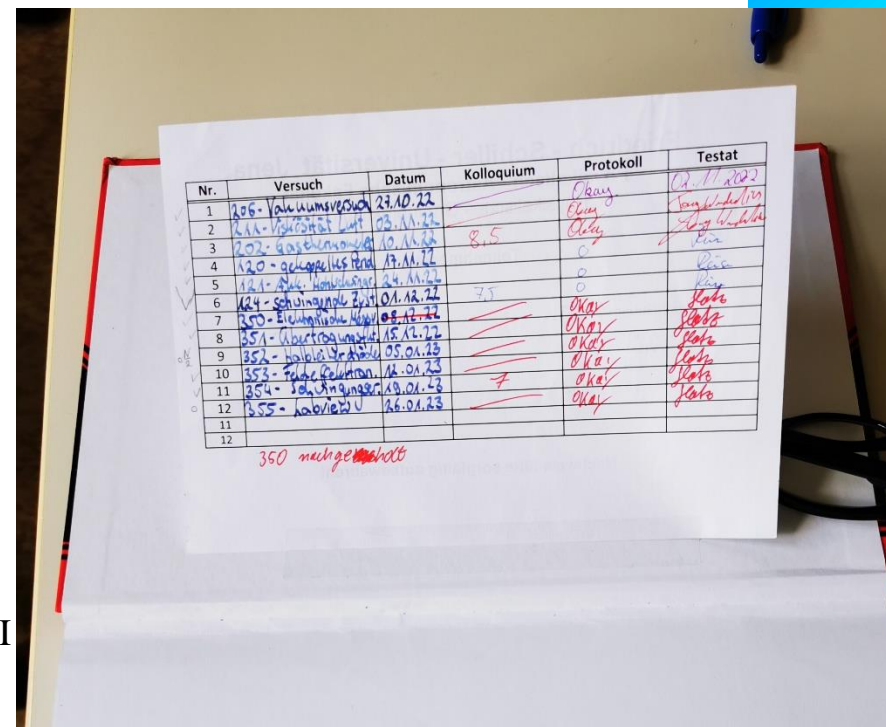 Friedrich - Schiller - Universität Jena
Nr. Versuch Datum Kolloquium Protokoll Testat
1 206 - Vakuumsversuch 27.10.22 Okay 02.11.2022
2 211 - Viskosität Luft 03.11.22 Okay
3 202 - Gasthermometer 10.11.22 8,5 Okay
4 120 - gekoppeltes Pend 17.11.22 0
5 121 - 24.11.22 0
6 124 - schwingende 01.12.22 7,5 0
7 350 - Elektronische 08.12.22 Okay
8 351 - Übertragungs 15.12.22 Okay
9 352 - Halbleiterdiode 05.01.23 Okay
10 353 - 12.01.23 Okay
11 354 - Schwingungser. 19.01.23 7 Okay
12 355 - Labview 26.01.23 Okay
11
12
350 nachgeholt
I